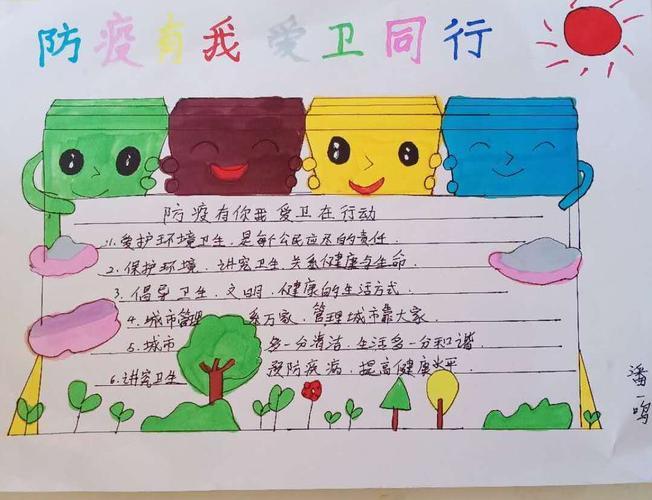 防疫有我爱卫同行
防疫有你我爱卫在行动
1.爱护环境卫生,是每个公民应尽的责任.
2.保护环境.讲究卫生.关系健康与生命.
3.倡导卫生,文明.健康的生活方式.
4.城市管理 系万家.管理城市靠大家.
5.城市 多一分清洁 生活多一分和谐.
6.讲究卫生 预防疾病,提高健康水平.
潘一鸣